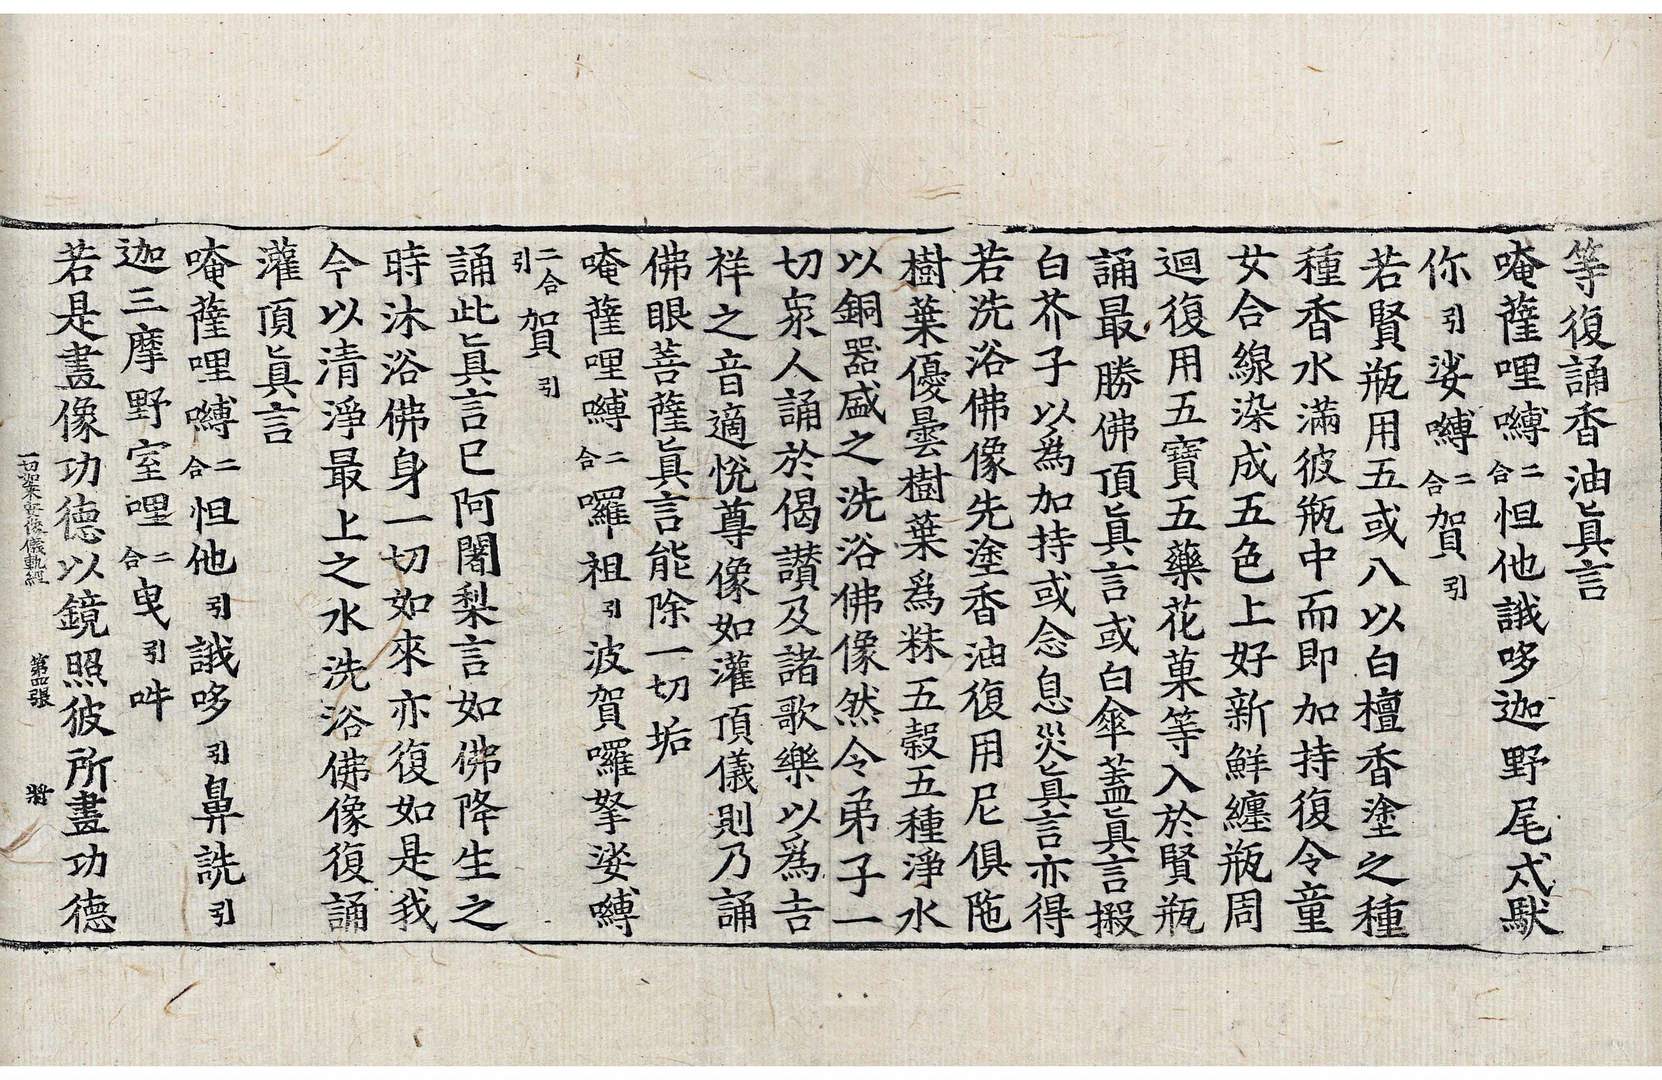 等復誦香油眞言
唵薩哩嚩二合怛他誐哆迦野尾戍馱
你引娑嚩二合賀引
若賢瓶用五或八以白檀香塗之種
種香水滿彼瓶中而即加持復令童
女合線染成五色上好新鮮纏瓶周
迴復用五寶五藥花菓等入於賢瓶
誦最勝佛頂眞言或白傘蓋眞言搬
白芥子以爲加持或念息災眞言亦得
若洗浴佛像先塗香油復用尼俱陁
樹葉優曇樹葉爲粖五穀五種淨水
以銅器盛之洗浴佛像然令弟子一
切衆人誦於偈讃及諸歌樂以爲吉
祥之音適悅尊像如灌頂儀則乃誦
佛眼菩薩眞言能除一切垢
唵薩哩嚩二合囉祖引波賀囉拏娑嚩
二合引賀引
誦此眞言已阿闍梨言如佛降生之
時沐浴佛身一切如來亦復如是我
今以清淨最上之水洗浴佛像復誦
灌頂眞言
唵薩哩嚩二合怛他引誐哆引鼻詵引
迦三摩野室哩二合曳引吽
若是畫像功德以鏡照彼所畫功德
一切如來安像儀軌經 第四張 將